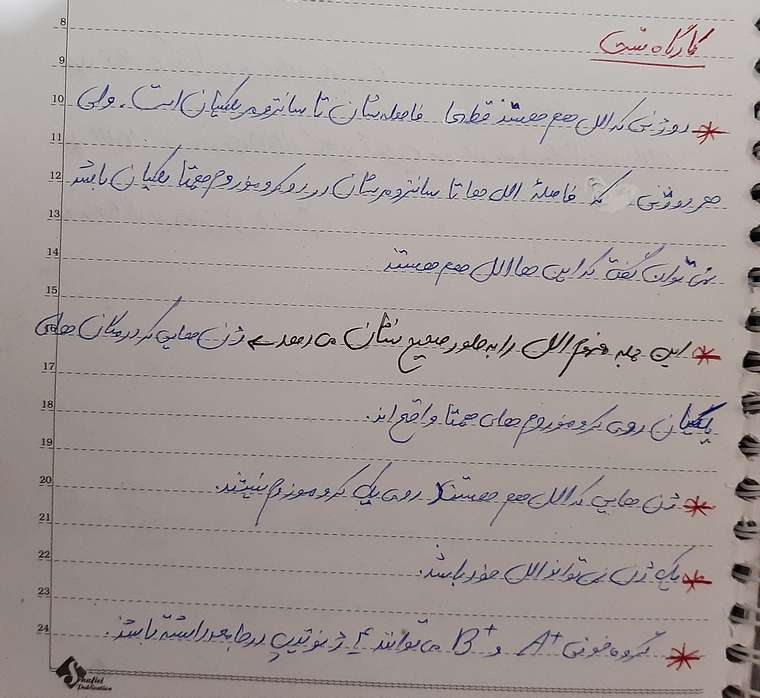 کارگاه تست
8
9
10
11
12
13
14
15
16
17
18
19
20
21
22
23
24
* دو ژنی که الل هم هستند قطعا فاصله‌شان تا سانترومر یکسان است. ولی
هر دو ژنی که فاصلهٔ الل ها تا سانترومرشان در دو کروموزوم همتا یکسان باشد
نمی‌توان گفت که این ها الل هم هستند
* این جمله مفهوم الل را به طور صحیح نشان می‌دهد ← ژن هایی که در مکان های
یکسان روی کروموزوم های همتا واقع اند.
* ژن هایی که الل هم هستند روی یک کروموزوم نیستند.
* یک ژن نمی‌تواند الل خود باشد.
* گروه خونی A+ و B+ می‌توانند ۴ ژنوتیپ در جامعه داشته باشند.
Shafiei
Publication